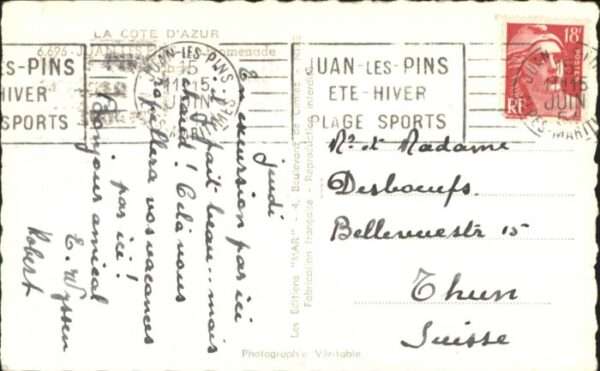 LA COTE D'AZUR
6.696 - JUAN-LES-PINS Promenade
ES-PINS
HIVER
SPORTS
JUAN-LES-PINS
15
JUIN
JUAN-LES-PINS
ETE-HIVER
PLAGE SPORTS
18F
POSTES
RF
JUIN
jeudi
En excursion par ici
il fait beau... mais
chaud! Cela nous
rapellera vos vacances
par ici!
Bonjour amical
E. Wyssen
Robert
Les Editions "MAR" - 4, Boulevard de Cimiez, Nice
Fabrication Française - Reproduction interdite
Mr et Madame
Desboeufs.
Bellevuestr 15
Thun
Suisse
Photographie Véritable